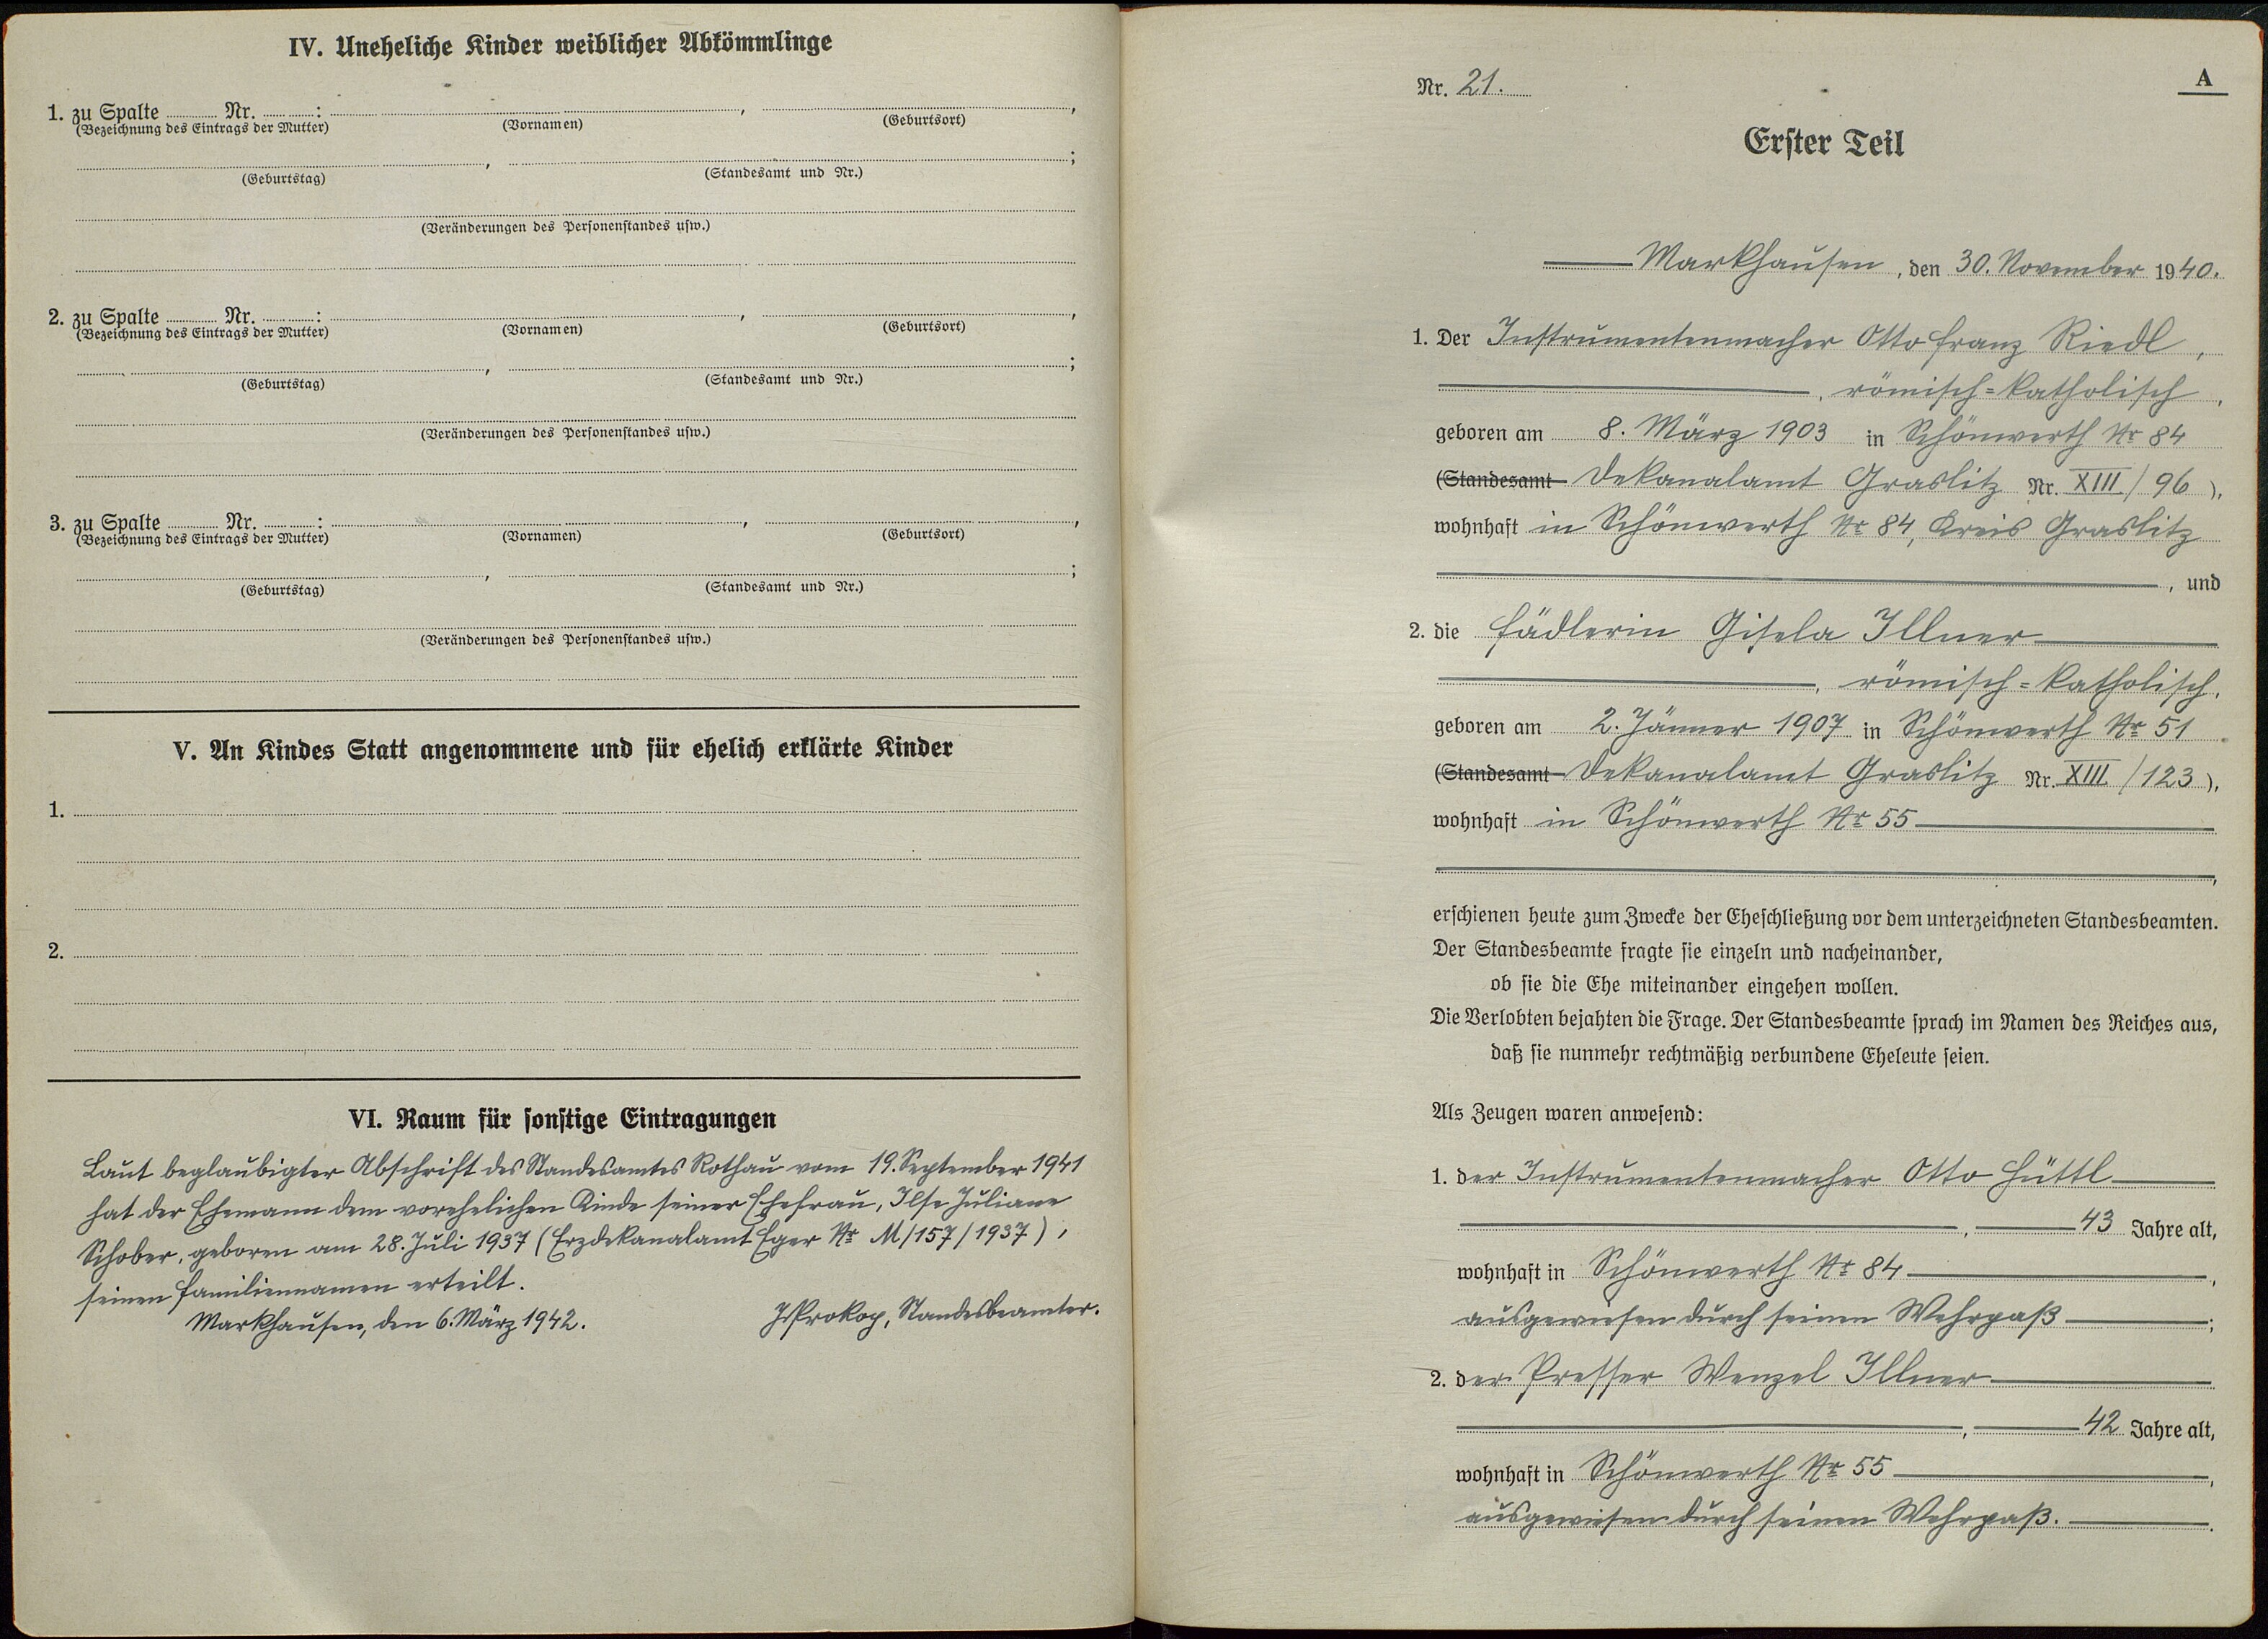 IV. Uneheliche Kinder weiblicher Abkömmlinge
1. zu Spalte ........ Nr. ........: ........, ........,
(Bezeichnung des Eintrags der Mutter) (Vornamen) (Geburtsort)
........, ........;
(Geburtstag) (Standesamt und Nr.)
(Veränderungen des Personenstandes usw.)
2. zu Spalte ........ Nr. ........: ........, ........,
(Bezeichnung des Eintrags der Mutter) (Vornamen) (Geburtsort)
........, ........;
(Geburtstag) (Standesamt und Nr.)
(Veränderungen des Personenstandes usw.)
3. zu Spalte ........ Nr. ........: ........, ........,
(Bezeichnung des Eintrags der Mutter) (Vornamen) (Geburtsort)
........, ........;
(Geburtstag) (Standesamt und Nr.)
(Veränderungen des Personenstandes usw.)
V. An Kindes Statt angenommene und für ehelich erklärte Kinder
1.
2.
VI. Raum für sonstige Eintragungen
Laut beglaubigter Abschrift des Standesamtes Rothau vom 19. September 1941
hat der Ehemann dem vorehelichen Kinde seiner Ehefrau, Ilse Juliane
Schober, geboren am 28. Juli 1937 (Erzdekanalamt Eger Nr M/157/1937),
seinen Familiennamen erteilt.
Markhausen, den 6. März 1942. JProkop, Standesbeamter.
Nr. 21. A
Erster Teil
Markhausen, den 30. November 1940.
1. Der Instrumentenmacher Otto Franz Riedl,
, römisch=katholisch,
geboren am 8. März 1903 in Schönwerth Nr 84
(Standesamt Dekanalamt Graslitz Nr. XIII/96),
wohnhaft in Schönwerth Nr 84, Kreis Graslitz
, und
2. die Fädlerin Gisela Illner
, römisch=katholisch,
geboren am 2. Jänner 1907 in Schönwerth Nr 51
(Standesamt Dekanalamt Graslitz Nr. XIII/123),
wohnhaft in Schönwerth Nr 55
,
erschienen heute zum Zwecke der Eheschließung vor dem unterzeichneten Standesbeamten.
Der Standesbeamte fragte sie einzeln und nacheinander,
ob sie die Ehe miteinander eingehen wollen.
Die Verlobten bejahten die Frage. Der Standesbeamte sprach im Namen des Reiches aus,
daß sie nunmehr rechtmäßig verbundene Eheleute seien.
Als Zeugen waren anwesend:
1. der Instrumentenmacher Otto Hüttl
, 43 Jahre alt,
wohnhaft in Schönwerth Nr 84,
ausgewiesen durch seinen Wehrpaß;
2. der Presser Wenzel Illner
, 42 Jahre alt,
wohnhaft in Schönwerth Nr 55,
ausgewiesen durch seinen Wehrpaß.